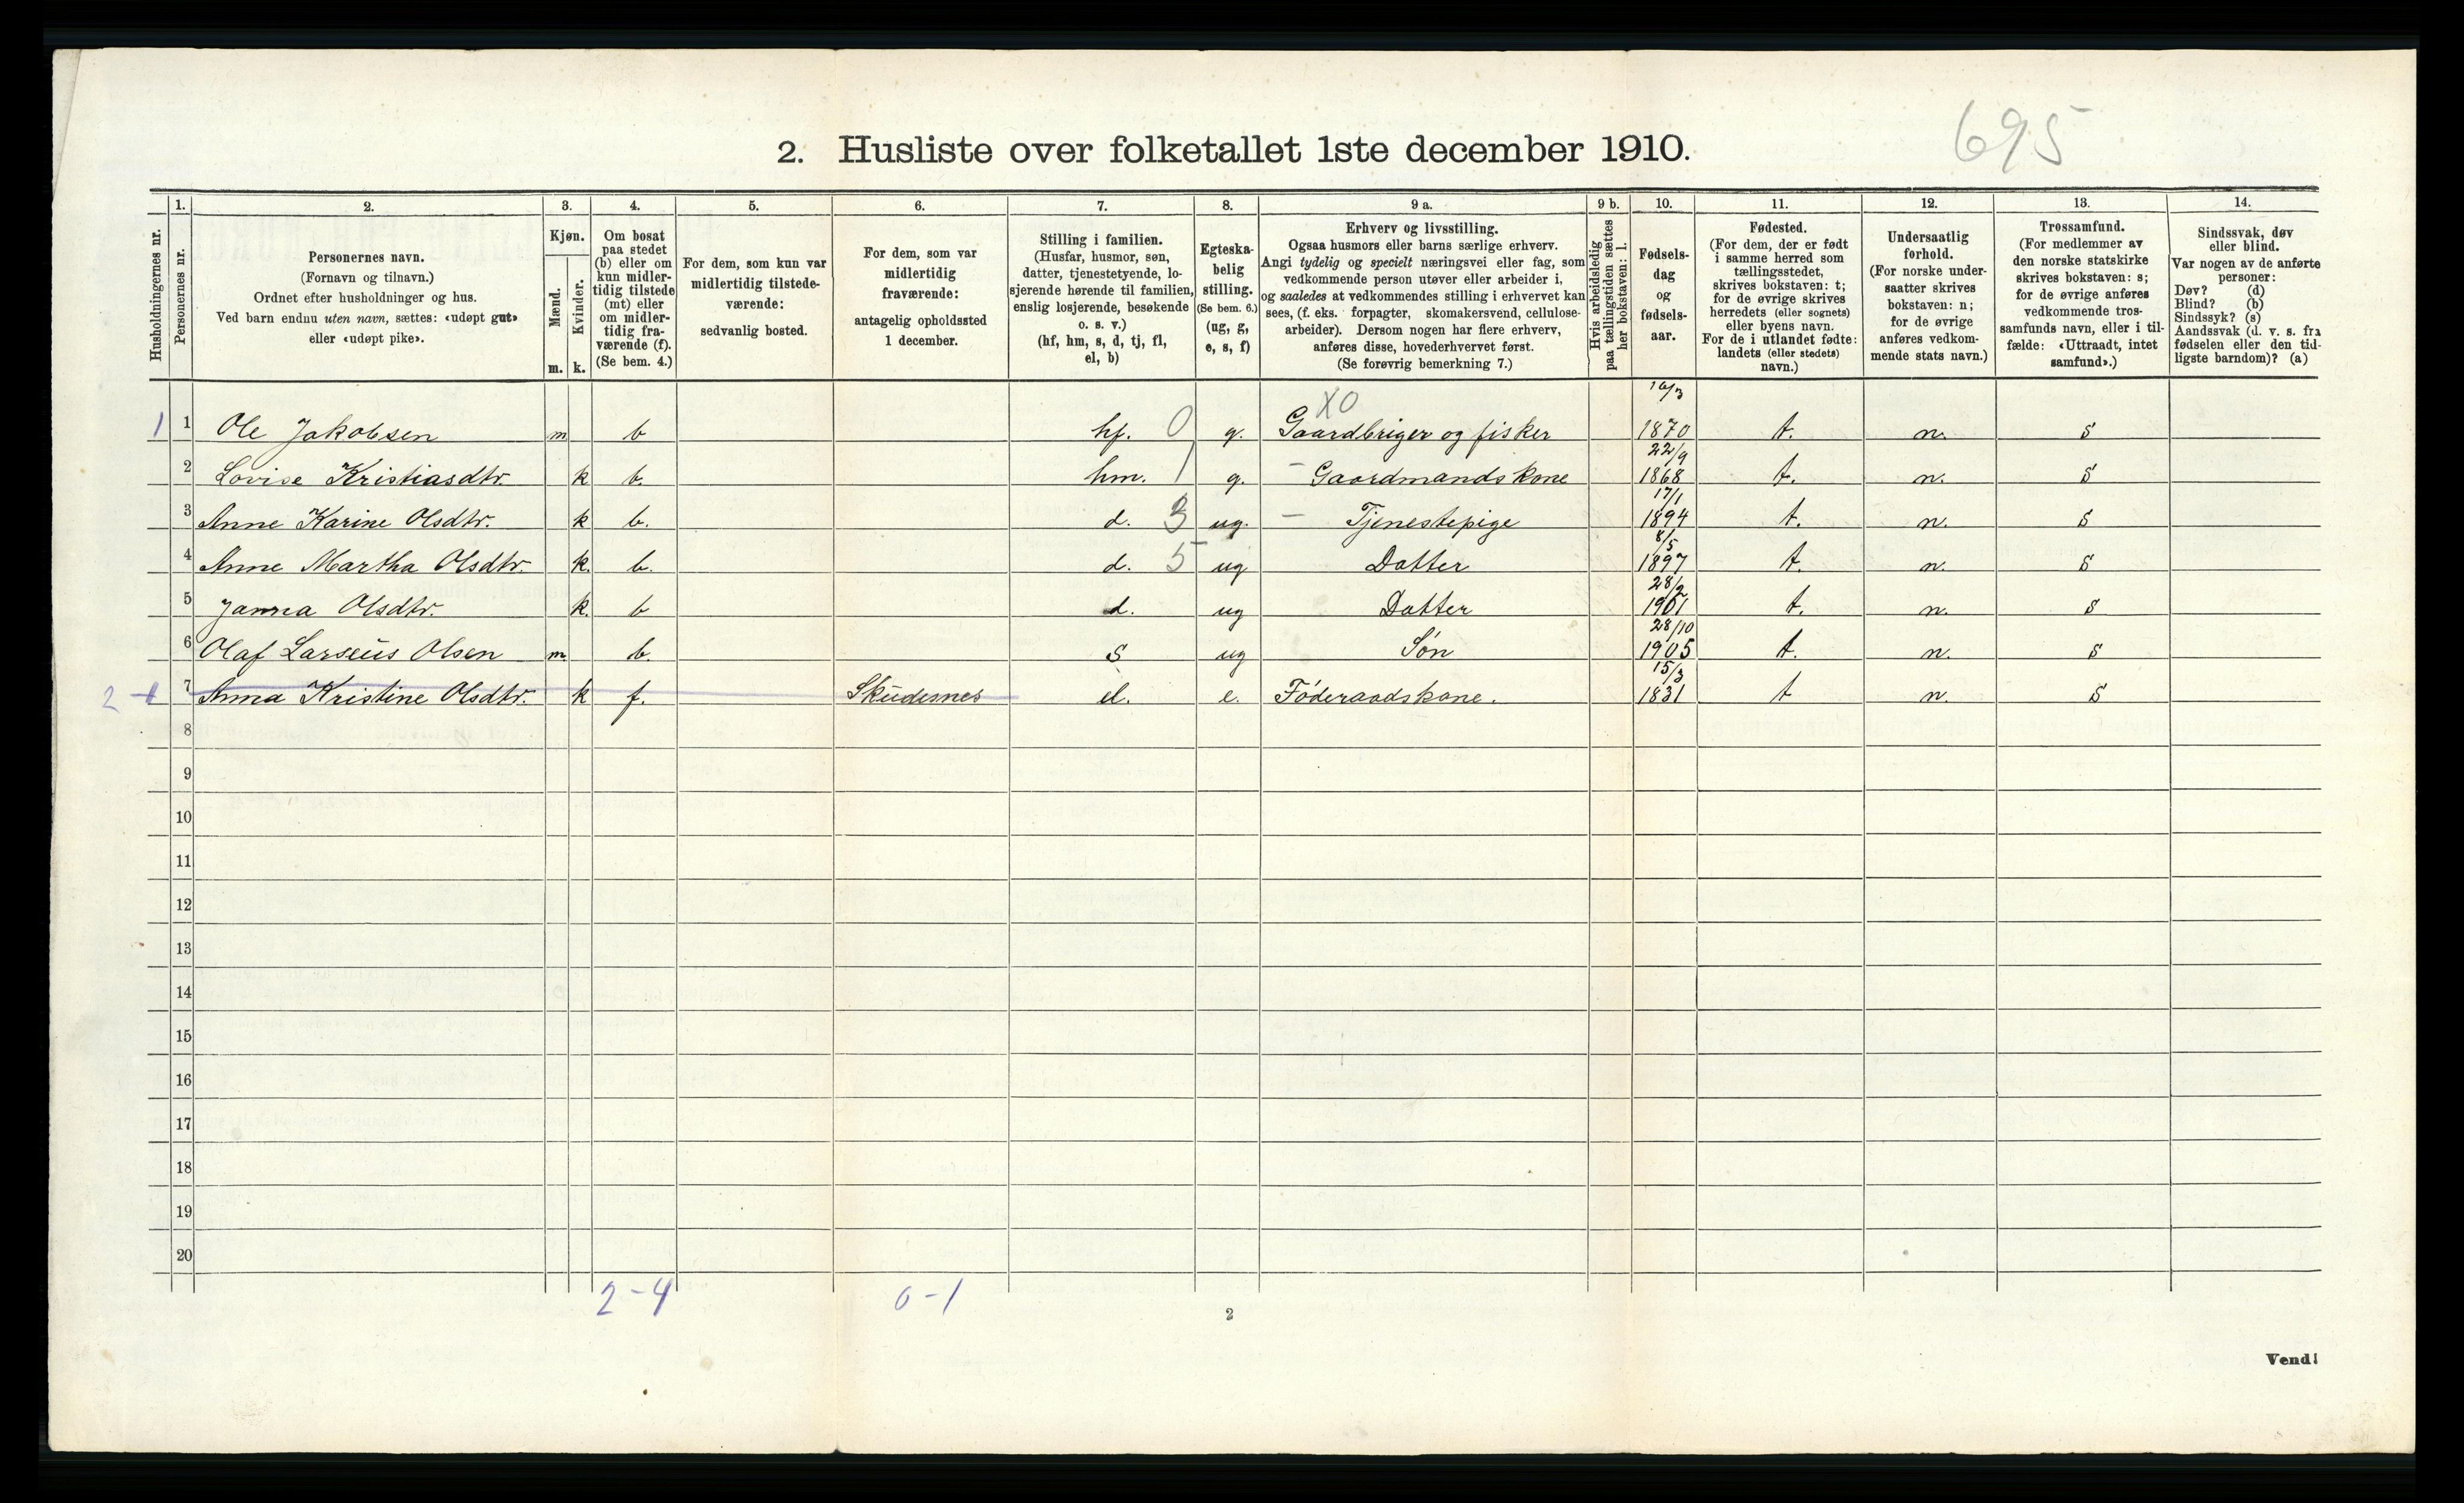 695
2. Husliste over folketallet 1ste december 1910.
Husholdningernes nr.
1.
Personernes nr.
2.
Personernes navn.
(Fornavn og tilnavn.)
Ordnet efter husholdninger og hus.
Ved barn endnu uten navn, sættes: «udøpt gut»
eller «udøpt pike».
3.
Kjøn.
Mænd.
Kvinder.
m. k.
4.
Om bosat
paa stedet
(b) eller om
kun midler-
tidig tilstede
(mt) eller
om midler-
tidig fra-
værende (f).
(Se bem. 4.)
5.
For dem, som kun var
midlertidig tilstede-
værende:
sedvanlig bosted.
6.
For dem, som var
midlertidig
fraværende:
antagelig opholdssted
1 december.
7.
Stilling i familien.
(Husfar, husmor, søn,
datter, tjenestetyende, lo-
sjerende hørende til familien,
enslig losjerende, besøkende
o. s. v.)
(hf, hm, s, d, tj, fl,
el, b)
8.
Egteska-
belig
stilling.
(Se bem. 6.)
(ug, g,
e, s, f)
9 a.
Erhverv og livsstilling.
Ogsaa husmors eller barns særlige erhverv.
Angi tydelig og specielt næringsvei eller fag, som
vedkommende person utøver eller arbeider i,
og saaledes at vedkommendes stilling i erhvervet kan
sees, (f. eks. forpagter, skomakersvend, cellulose-
arbeider). Dersom nogen har flere erhverv,
anføres disse, hovederhvervet først.
(Se forøvrig bemerkning 7.)
9 b.
Hvis arbeidsledig
paa tællingstiden sættes
her bokstaven: l.
10.
Fødsels-
dag
og
fødsels-
aar.
11.
Fødested.
(For dem, der er født
i samme herred som
tællingsstedet,
skrives bokstaven: t;
for de øvrige skrives
herredets (eller sognets)
eller byens navn.
For de i utlandet fødte:
landets (eller stedets)
navn.)
12.
Undersaatlig
forhold.
(For norske under-
saatter skrives
bokstaven: n;
for de øvrige
anføres vedkom-
mende stats navn.)
13.
Trossamfund.
(For medlemmer av
den norske statskirke
skrives bokstaven: s;
for de øvrige anføres
vedkommende tros-
samfunds navn, eller i til-
fælde: «Uttraadt, intet
samfund».)
14.
Sindssvak, døv
eller blind.
Var nogen av de anførte
personer:
Døv? (d)
Blind? (b)
Sindssyk? (s)
Aandssvak (d. v. s. fra
fødselen eller den tid-
ligste barndom)? (a)
1 1 Ole Jakobsen m b hf. 0 g. X0 Gaardbriger og fisker 16/3 1870 t. n. s
2 Lovise Kristiasdtr. k b. hm. 1 g. – Gaardmandskone 22/9 1868 t. n. s
3 Anne Karine Olsdtr. k b. d. 3 ug. – Tjenestepige 17/1 1894 t. n. s
4 Anne Martha Olsdtr. k. b. d. 5 ug Datter 8/5 1897 t. n. s
5 Janna Olsdtr. k. b d. ug Datter 28/2 1901 t. n. s
6 Olaf Larseüs Olsen m b. s ug Søn 28/10 1905 t. n. s
2-1 7 Anna Kristine Olsdtr. k f. Skudesnes el. e. Føderaadskone. 15/3 1831 t n. s
8
9
10
11
12
13
14
15
16
17
18
19
20
2-4 0-1
2
Vend!